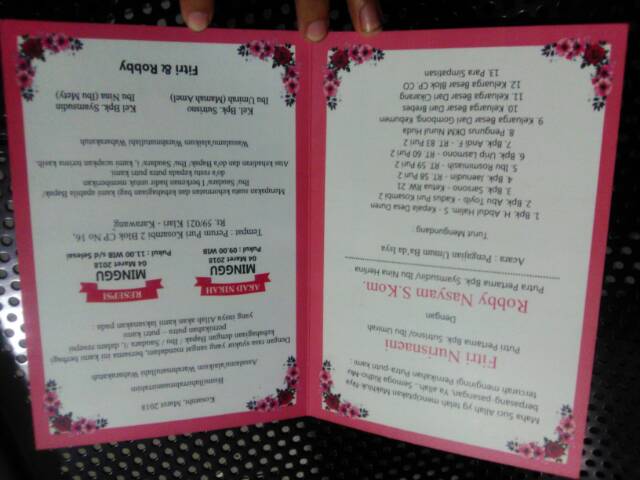 Maha Suci Allah yg telah menciptakan Makhluk-Nya
berpasang-pasangan. Ya allah . Semoga Ridho-Mu
tercurah mengiringi Pernikahan Putra-Putri kami :
Fitri Nurisnaeni
Putri Pertama Bpk. Sutrisno/ Ibu Umirah
Dengan
Robby Nasyam S.Kom.
Putra Pertama Bpk. Syamsudin/ Ibu Nina Herlina
Acara : Pengajian Umum Ba da Isya
Turut Mengundang
1. Bpk. H. Abdul Halim. S - Kepala Desa Duren
2. Bpk. Abu Toyib - Kadus Puri Kosambi 2
3. Bpk. Sarsono - Ketua RW 21
4. Bpk. Jaenudin - RT. 58 Puri 2
5. Ibu Rosminasih - RT. 59 Puri 2
6. Bpk. Urip Lasmono - RT. 60 Puri 2
7. Bpk. Andi. F - RT. 83 Puri 2
8. Pengurus DKM Nurul Huda
9. Keluarga Besar Dari Gombong, Kebumen
10. Keluarga Besar Dari Brebes
11. Keluarga Besar Dari Cikarang
12. Keluarga Besar Blok CP, CO
13. Para Simpatisan
Kosambi, Maret 2018
Bismilahirrahmanirrahim
Assalamu'alaikum Warahmatullahi Wabarakatuh
Dengan rasa syukur yang sangat mendalam, bersama ini kami berbagi
kebahagiaan dengan Bapak / Ibu / Saudara /i, dalam resepsi
pernikahan putra - putri kami
yang insya Allah akan kami laksanakan pada :
AKAD NIKAH
MINGGU
04 Maret 2018
Pukul : 09.00 WIB
RESEPSI
MINGGU
04 Maret 2018
Pukul : 11.00 WIB s/d Selesai
Tempat : Puri Perum Puri Kosambi 2 Blok CP No 16,
Rt. 59/021 Klari - Karawang
Merupakan suatu kehormatan dan kebahagiaan bagi kami apabila Bapak/
Ibu/ Saudara/ I berkenan hadir untuk memberikan
do'a restu kepada putra putri kami.
Atas kehadiran dan do'a Bapak/ Ibu/ Saudara/ i, kami ucapkan terima kasih.
Wassalamu'alaikum Warahmatullahi Wabarakatuh
Kel. Bpk. Sutrisno
Ibu Umirah (Mamah Ame)
Kel. Bpk. Syamsudin
Ibu Nina (Ibu Mety)
Fitri & Robby